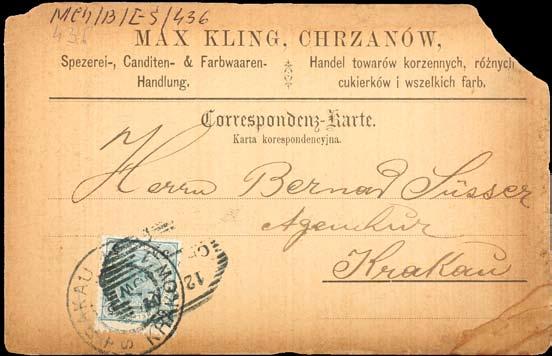 Mch/B/E-Ś/436
436
MAX KLING, CHRZANÓW,
Spezerei-, Canditen- & Farbwaaren-
Handlung.
Handel towarów korzennych, różnych
cukierków i wszelkich farb.
Correspondenz-Karte.
Karta korespondencyjna.
Herrn Bernad Süsser
Agentur
Krakau
KRAKAU
12